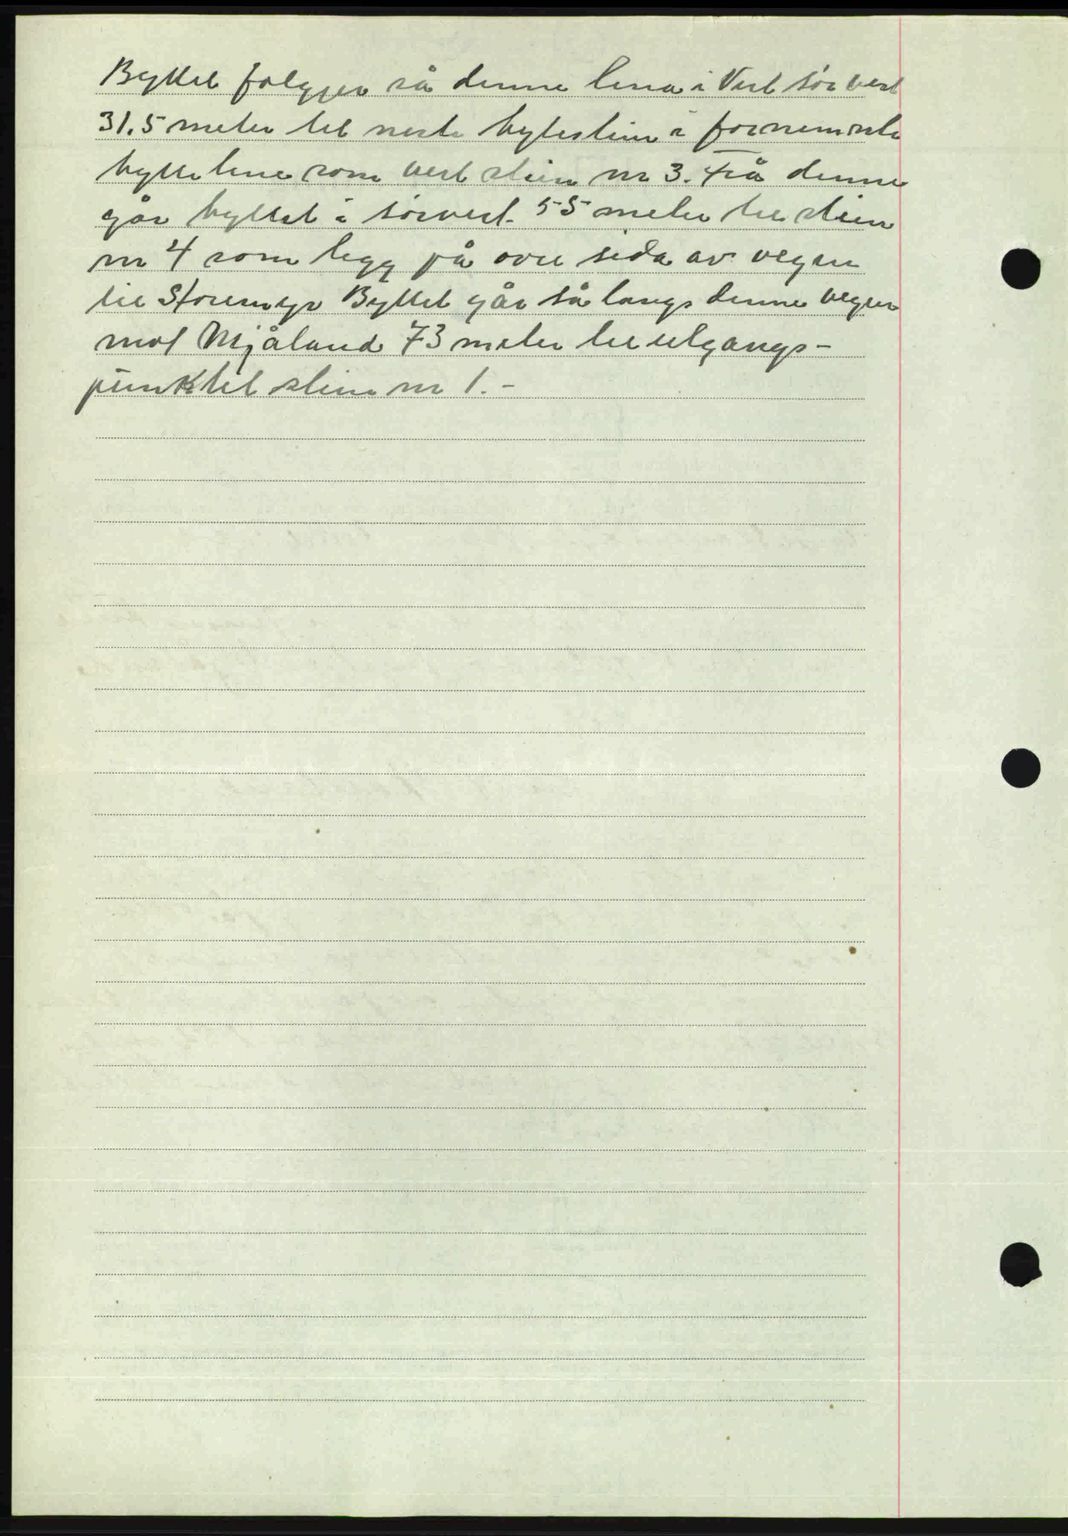 Byttet følgjer så denne lina i Vest sør vest
31.5 meter til neste bytestein i fornemnte
bytte line som vert stein nr 3. Frå denne
går byttet i sørvest 55 meter til stein
nr 4 som ligg på øvre sida av vegen
til Storemyr Byttet går så langs denne vegen
mot Mjåland 73 meter til utgangs-
punktet stein nr 1. -